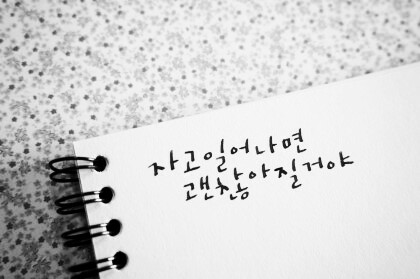 자고일어나면
괜찮아질거야